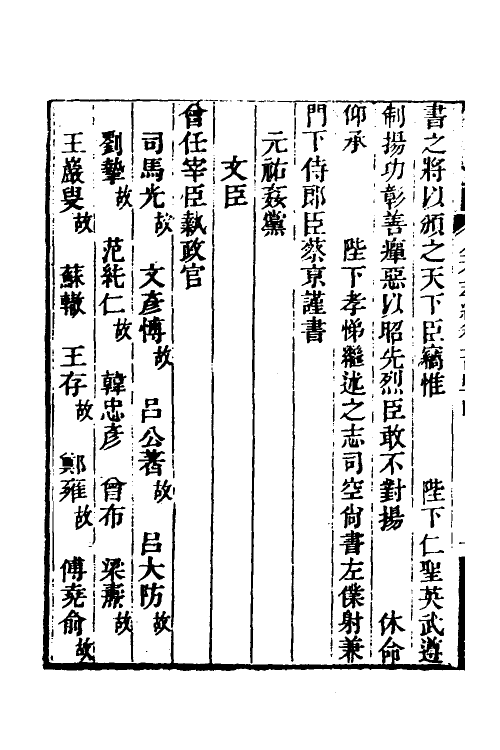 書之將以頒之天下臣竊惟 陛下仁聖英武遵
制揚功彰善癉惡以昭先烈臣敢不對揚 休命
仰承 陛下孝悌繼述之志司空尙書左僕射兼
門下侍郎臣蔡京謹書
元祐姦黨
文臣
曾任宰臣執政官
司馬光故 文彥博故 呂公著故 呂大防故
劉摯故 范純仁故 韓忠彥 曾布 梁燾故
王巖叟故 蘇轍 王存故 鄭雍故 傅堯俞故